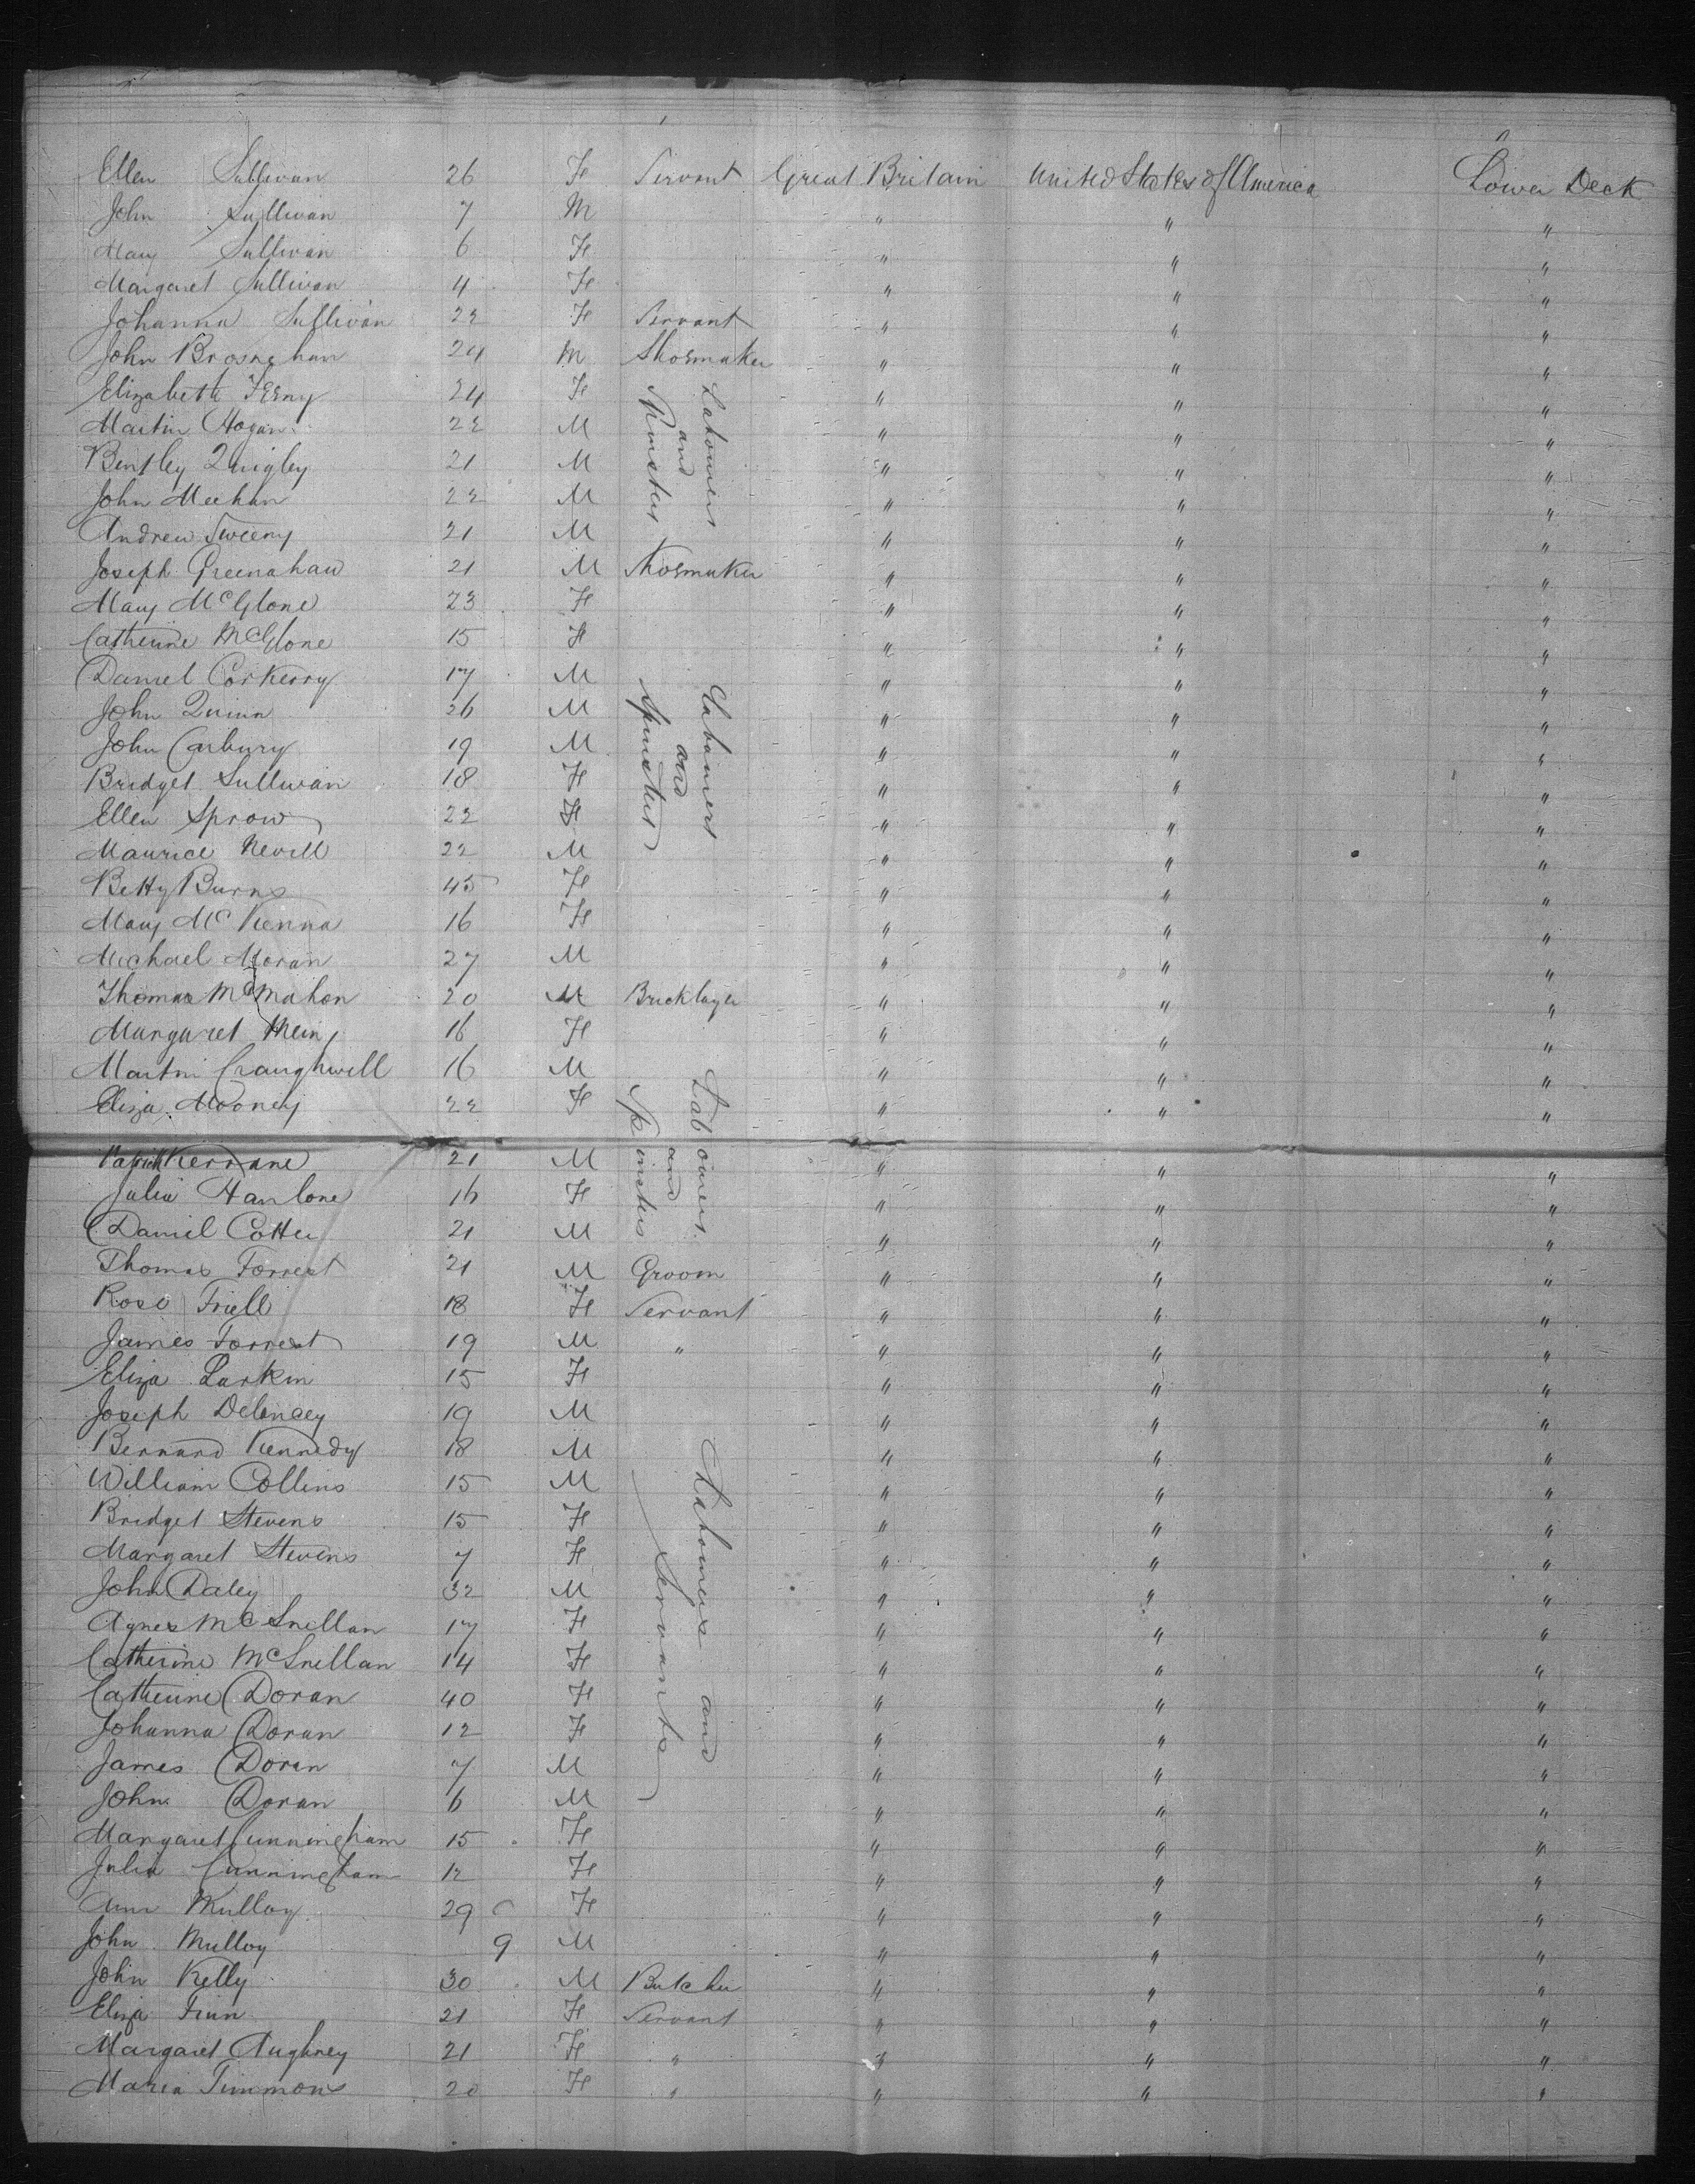 Ellen Sullivan 26 F Servant Great Britain United States of America Lower Deck
John Sullivan 7 M " " "
Mary Sullivan 6 F " " "
Margaret Sullivan 4 F " " "
Johanna Sullivan 22 F Servant " " "
John Brosnehan 24 M Shoemaker " " "
Elizabeth Feeny 24 F Labourers and Spinsters " " "
Martin Hogan 22 M " " "
Bentley Quigley 21 M " " "
John Meehan 22 M " " "
Andrew Sweeny 21 M " " "
Joseph Greenahaw 21 M Shoemaker " " "
Mary McGlone 23 F " " "
Catherine McGlone 15 F " " "
Daniel Corkerry 17 M Labourers and Spinsters " " "
John Quinn 26 M " " "
John Carbury 19 M " " "
Bridget Sullivan 18 F " " "
Ellen Sprow 22 F " " "
Maurice Nevill 22 M " " "
Betty Burns 45 F " " "
Mary McKenna 16 F " " "
Michael Moran 27 M " " "
Thomas McMahon 20 M Bricklayer " " "
Margaret 16 F " " "
Martin Craughwell 16 M Labourers and Spinsters " " "
Eliza Mooney 22 F " " "
Patrick Kerrane 21 M " " "
Julia Hanlone 16 F " " "
Daniel Cotter 21 M " " "
Thomas Forrest 21 M Groom " " "
Rose Friell 18 F Servant " " "
James Forrest 19 M " " " "
Eliza Larkin 15 F " " "
Joseph Delancey 19 M " " "
Bernard Kennedy 18 M Labourers and Servants " " "
William Collins 15 M " " "
Bridget Stevens 15 F " " "
Margaret Stevens 7 F " " "
John Daley 32 M " " "
Agnes McSnellan 17 F " " "
Catherine McSnellan 14 F " " "
Catherine Doran 40 F " " "
Johanna Doran 12 F " " "
James Doran 7 M " " "
John Doran 6 M " " "
Margaret Cunningham 15 F " " "
Julia Cunningham 12 F " " "
Ann Mulloy 29 F " " "
John Mulloy 9 M " " "
John Kelly 30 M Butcher " " "
Eliza Finn 21 F Servant " " "
Margaret Aughney 21 F " " " "
Maria Timmons 20 F " " " "